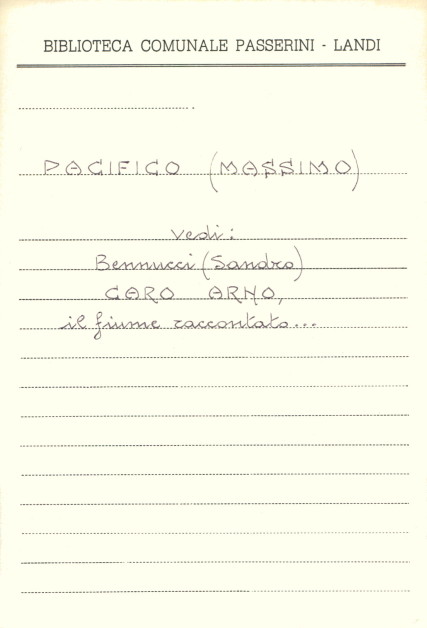 BIBLIOTECA COMUNALE PASSERINI - LANDI
PACIFICO (MASSIMO)
vedi:
Bennucci (Sandro)
CARO ARNO,
il fiume raccontato...